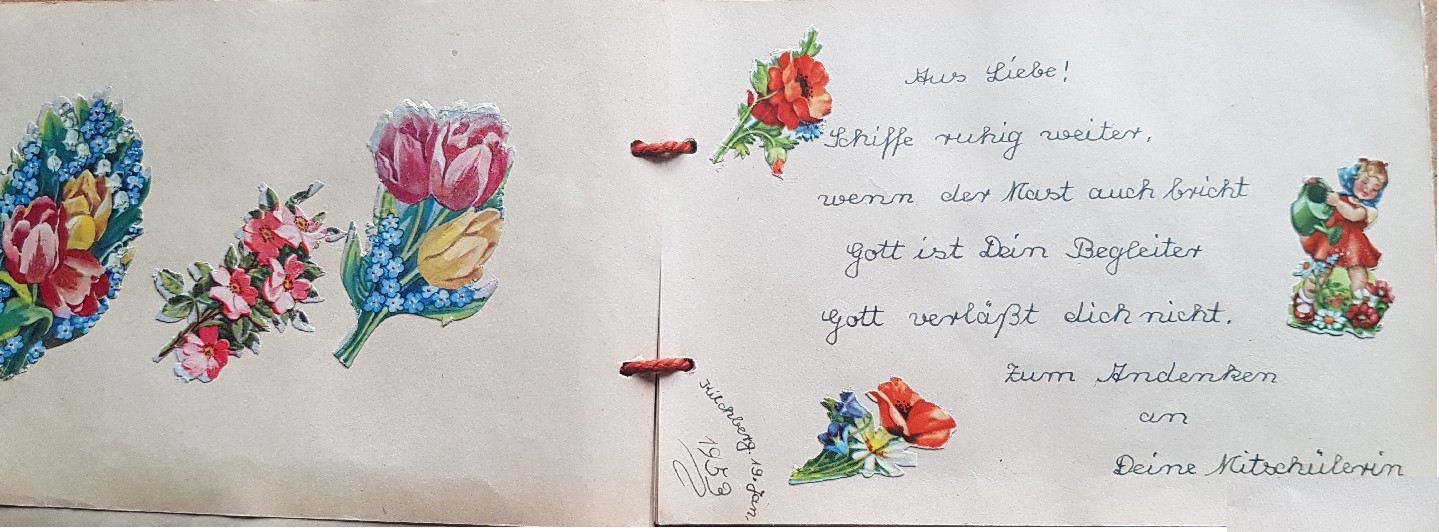 Aus Liebe!
Schiffe ruhig weiter,
wenn der Mast auch bricht
Gott ist Dein Begleiter
Gott verläßt dich nicht.
Zum Andenken
an
Deine Mitschülerin
Kilchberg. 19. Jan.
1959